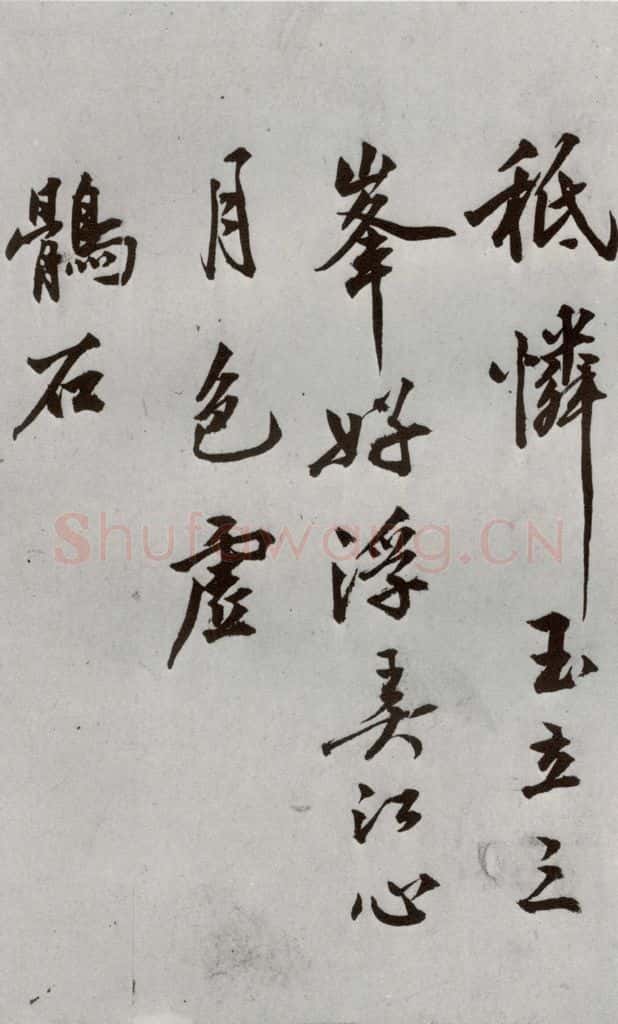 秪憐玉立三
峯好浮江心
月色虛
鶻石
Shufawang.CN